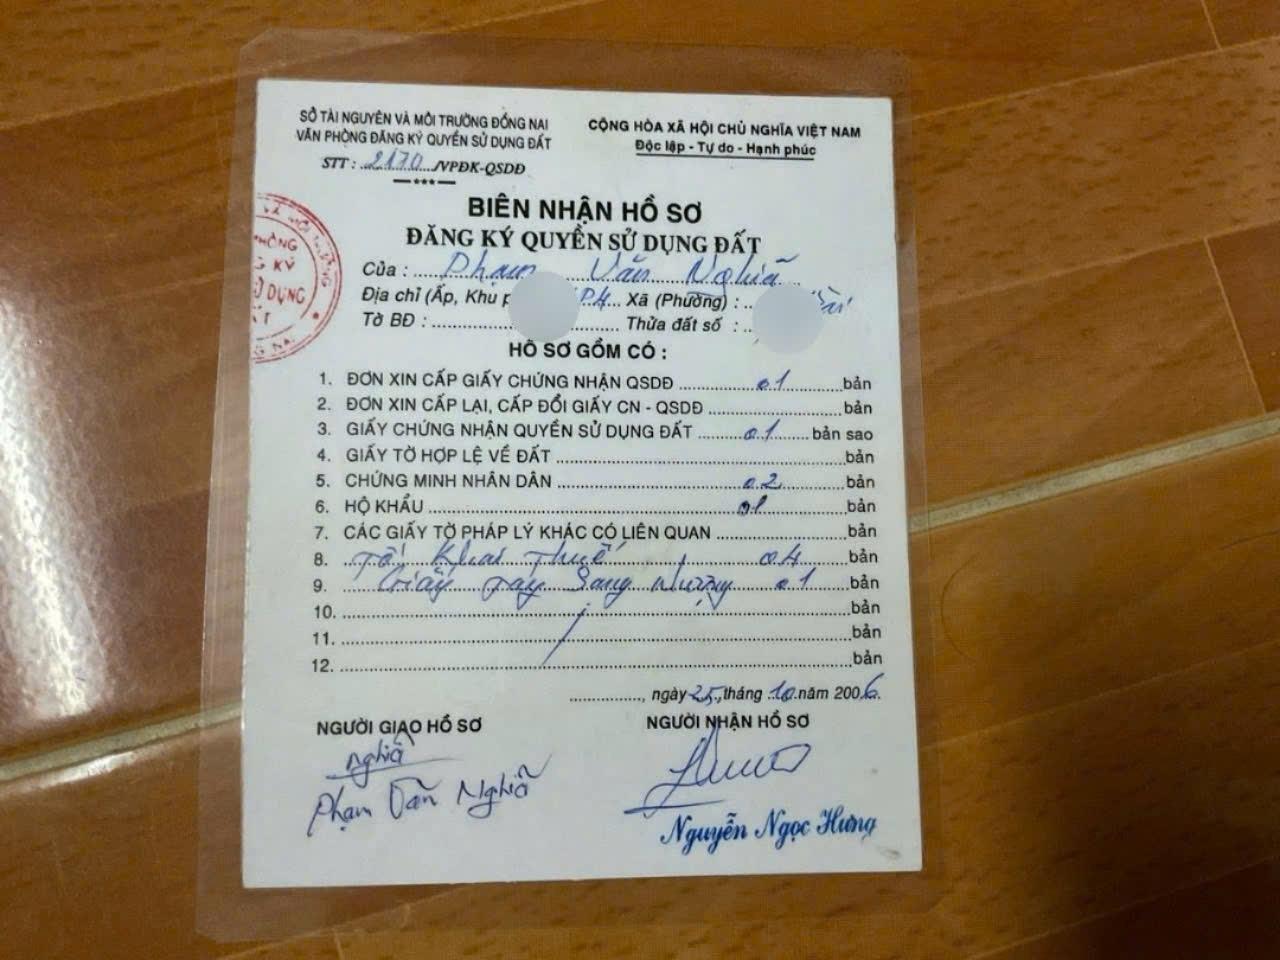 SỞ TÀI NGUYÊN VÀ MÔI TRƯỜNG ĐỒNG NAI
VĂN PHÒNG ĐĂNG KÝ QUYỀN SỬ DỤNG ĐẤT
STT : 2170 /VPĐK-QSDĐ
CỘNG HÒA XÃ HỘI CHỦ NGHĨA VIỆT NAM
Độc lập - Tự do - Hạnh phúc
BIÊN NHẬN HỒ SƠ
ĐĂNG KÝ QUYỀN SỬ DỤNG ĐẤT
Của : Phạm Văn Nghĩa
Địa chỉ (Ấp, Khu P4 Xã (Phường) :
Tờ BĐ : Thửa đất số :
HỒ SƠ GỒM CÓ :
1. ĐƠN XIN CẤP GIẤY CHỨNG NHẬN QSDĐ 01 bản
2. ĐƠN XIN CẤP LẠI, CẤP ĐỔI GIẤY CN - QSDĐ bản
3. GIẤY CHỨNG NHẬN QUYỀN SỬ DỤNG ĐẤT 01 bản sao
4. GIẤY TỜ HỢP LỆ VỀ ĐẤT bản
5. CHỨNG MINH NHÂN DÂN 02 bản
6. HỘ KHẨU 01 bản
7. CÁC GIẤY TỜ PHÁP LÝ KHÁC CÓ LIÊN QUAN bản
8. Tờ Khai Thuế 04 bản
9. Giấy Tay Sang Nhượng 01 bản
10. bản
11. bản
12. bản
, ngày 25 tháng 10 năm 2006.
NGƯỜI GIAO HỒ SƠ
NGƯỜI NHẬN HỒ SƠ
nghĩa
Phạm Văn Nghĩa
Nguyễn Ngọc Hưng